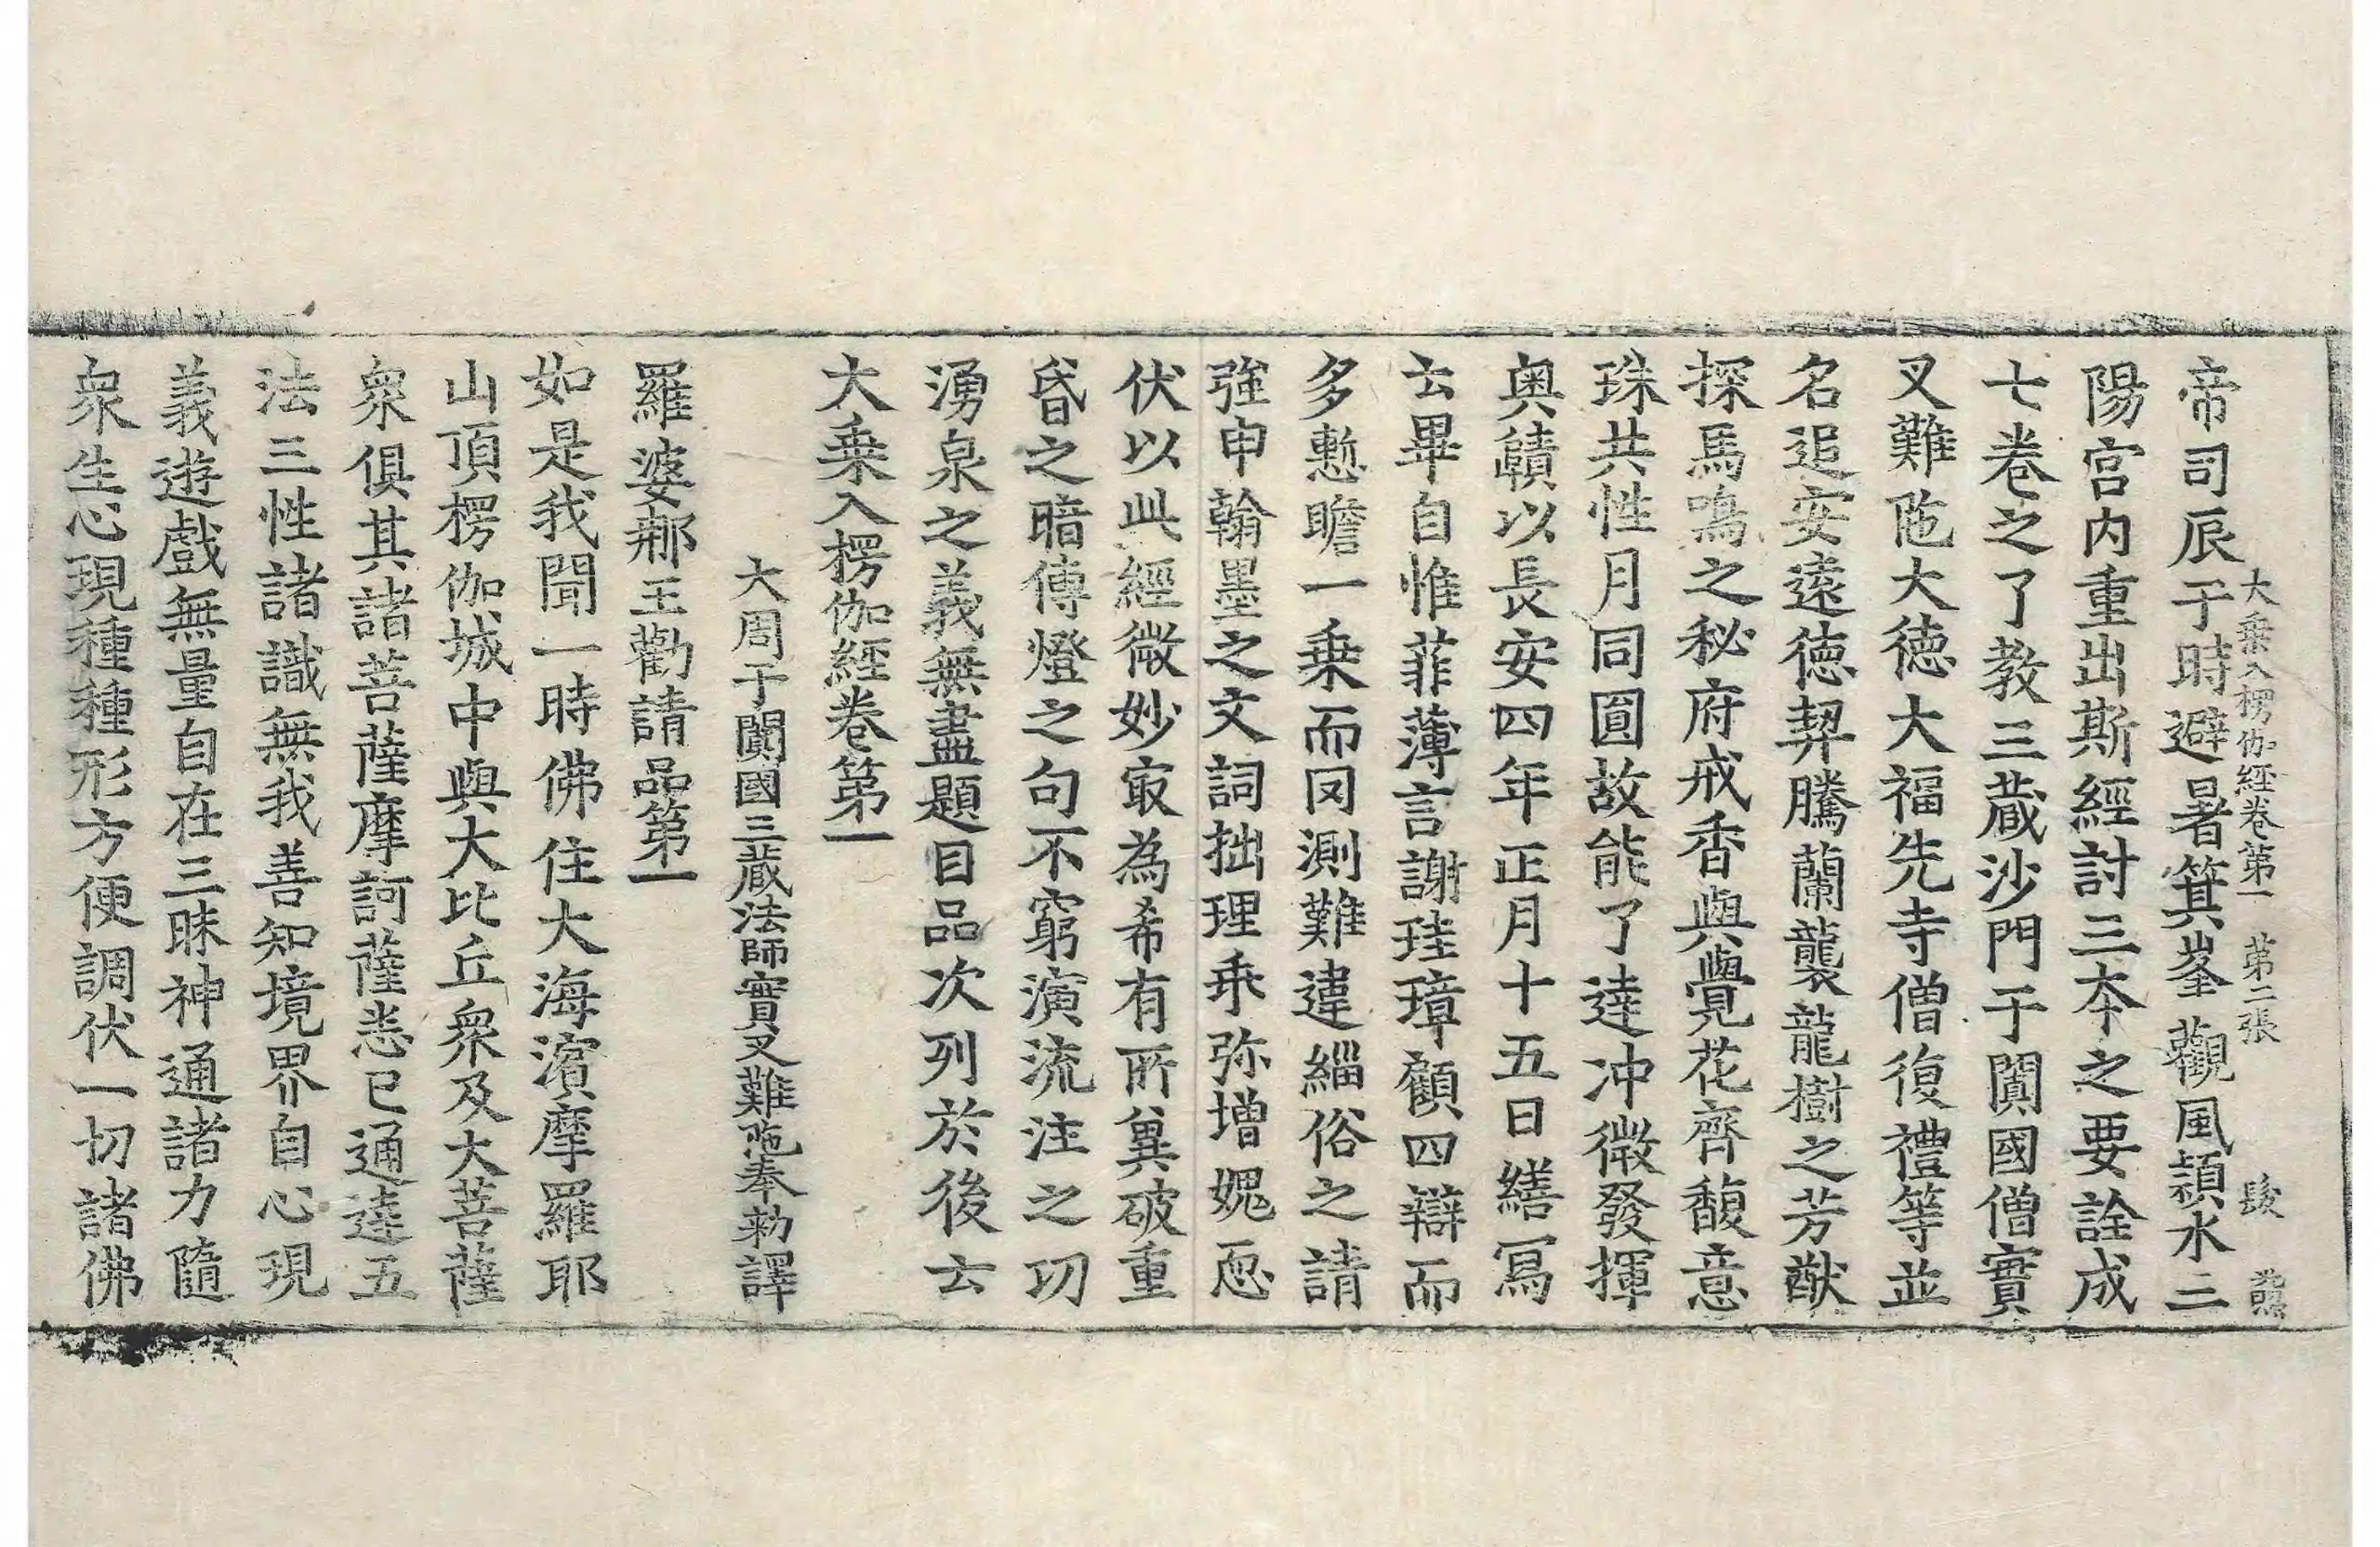 大乗入楞伽経卷第一 第二張 髮
帝司辰于時避暑箕峯觀風潁水三
陽宮内重出斯經討三本之要詮成
七卷之了教三蔵沙門于闐國僧實
叉難陁大德大福先寺僧復禮等並
名追安遠德契騰蘭襲龍樹之芳猷
探馬鳴之秘府戒香與覺花齊馥意
珠共性月同圓故能了達冲微發揮
奥賾以長安四年正月十五日繕寫
云畢自惟菲薄言謝珪璋顧四辯而
多慙瞻一乗而罔測難違緇俗之請
強申翰墨之文詞拙理乖弥增媿恧
伏以此經微妙冣為希有所兾破重
昏之暗傳燈之句不窮演流注之功
湧泉之義無盡題目品次列於後云
大乗入楞伽經卷第一
大周于闐國三蔵法師實叉難陁奉勑譯
羅婆𨚗王勸請品第一
如是我聞一時佛住大海濵摩羅耶
山頂楞伽城中與大比丘衆及大菩薩
衆俱其諸菩薩摩訶薩悉已通達五
法三性諸識無我善知境界自心現
義遊戲無量自在三昧神通諸力隨
衆生心現種種形方便調伏一切諸佛